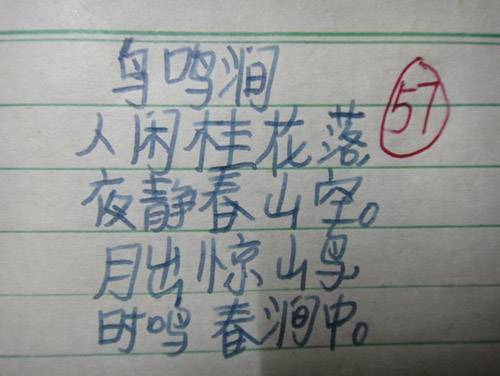 鸟鸣涧
57
人闲桂花落
夜静春山空。
月出惊山鸟
时鸣春涧中。